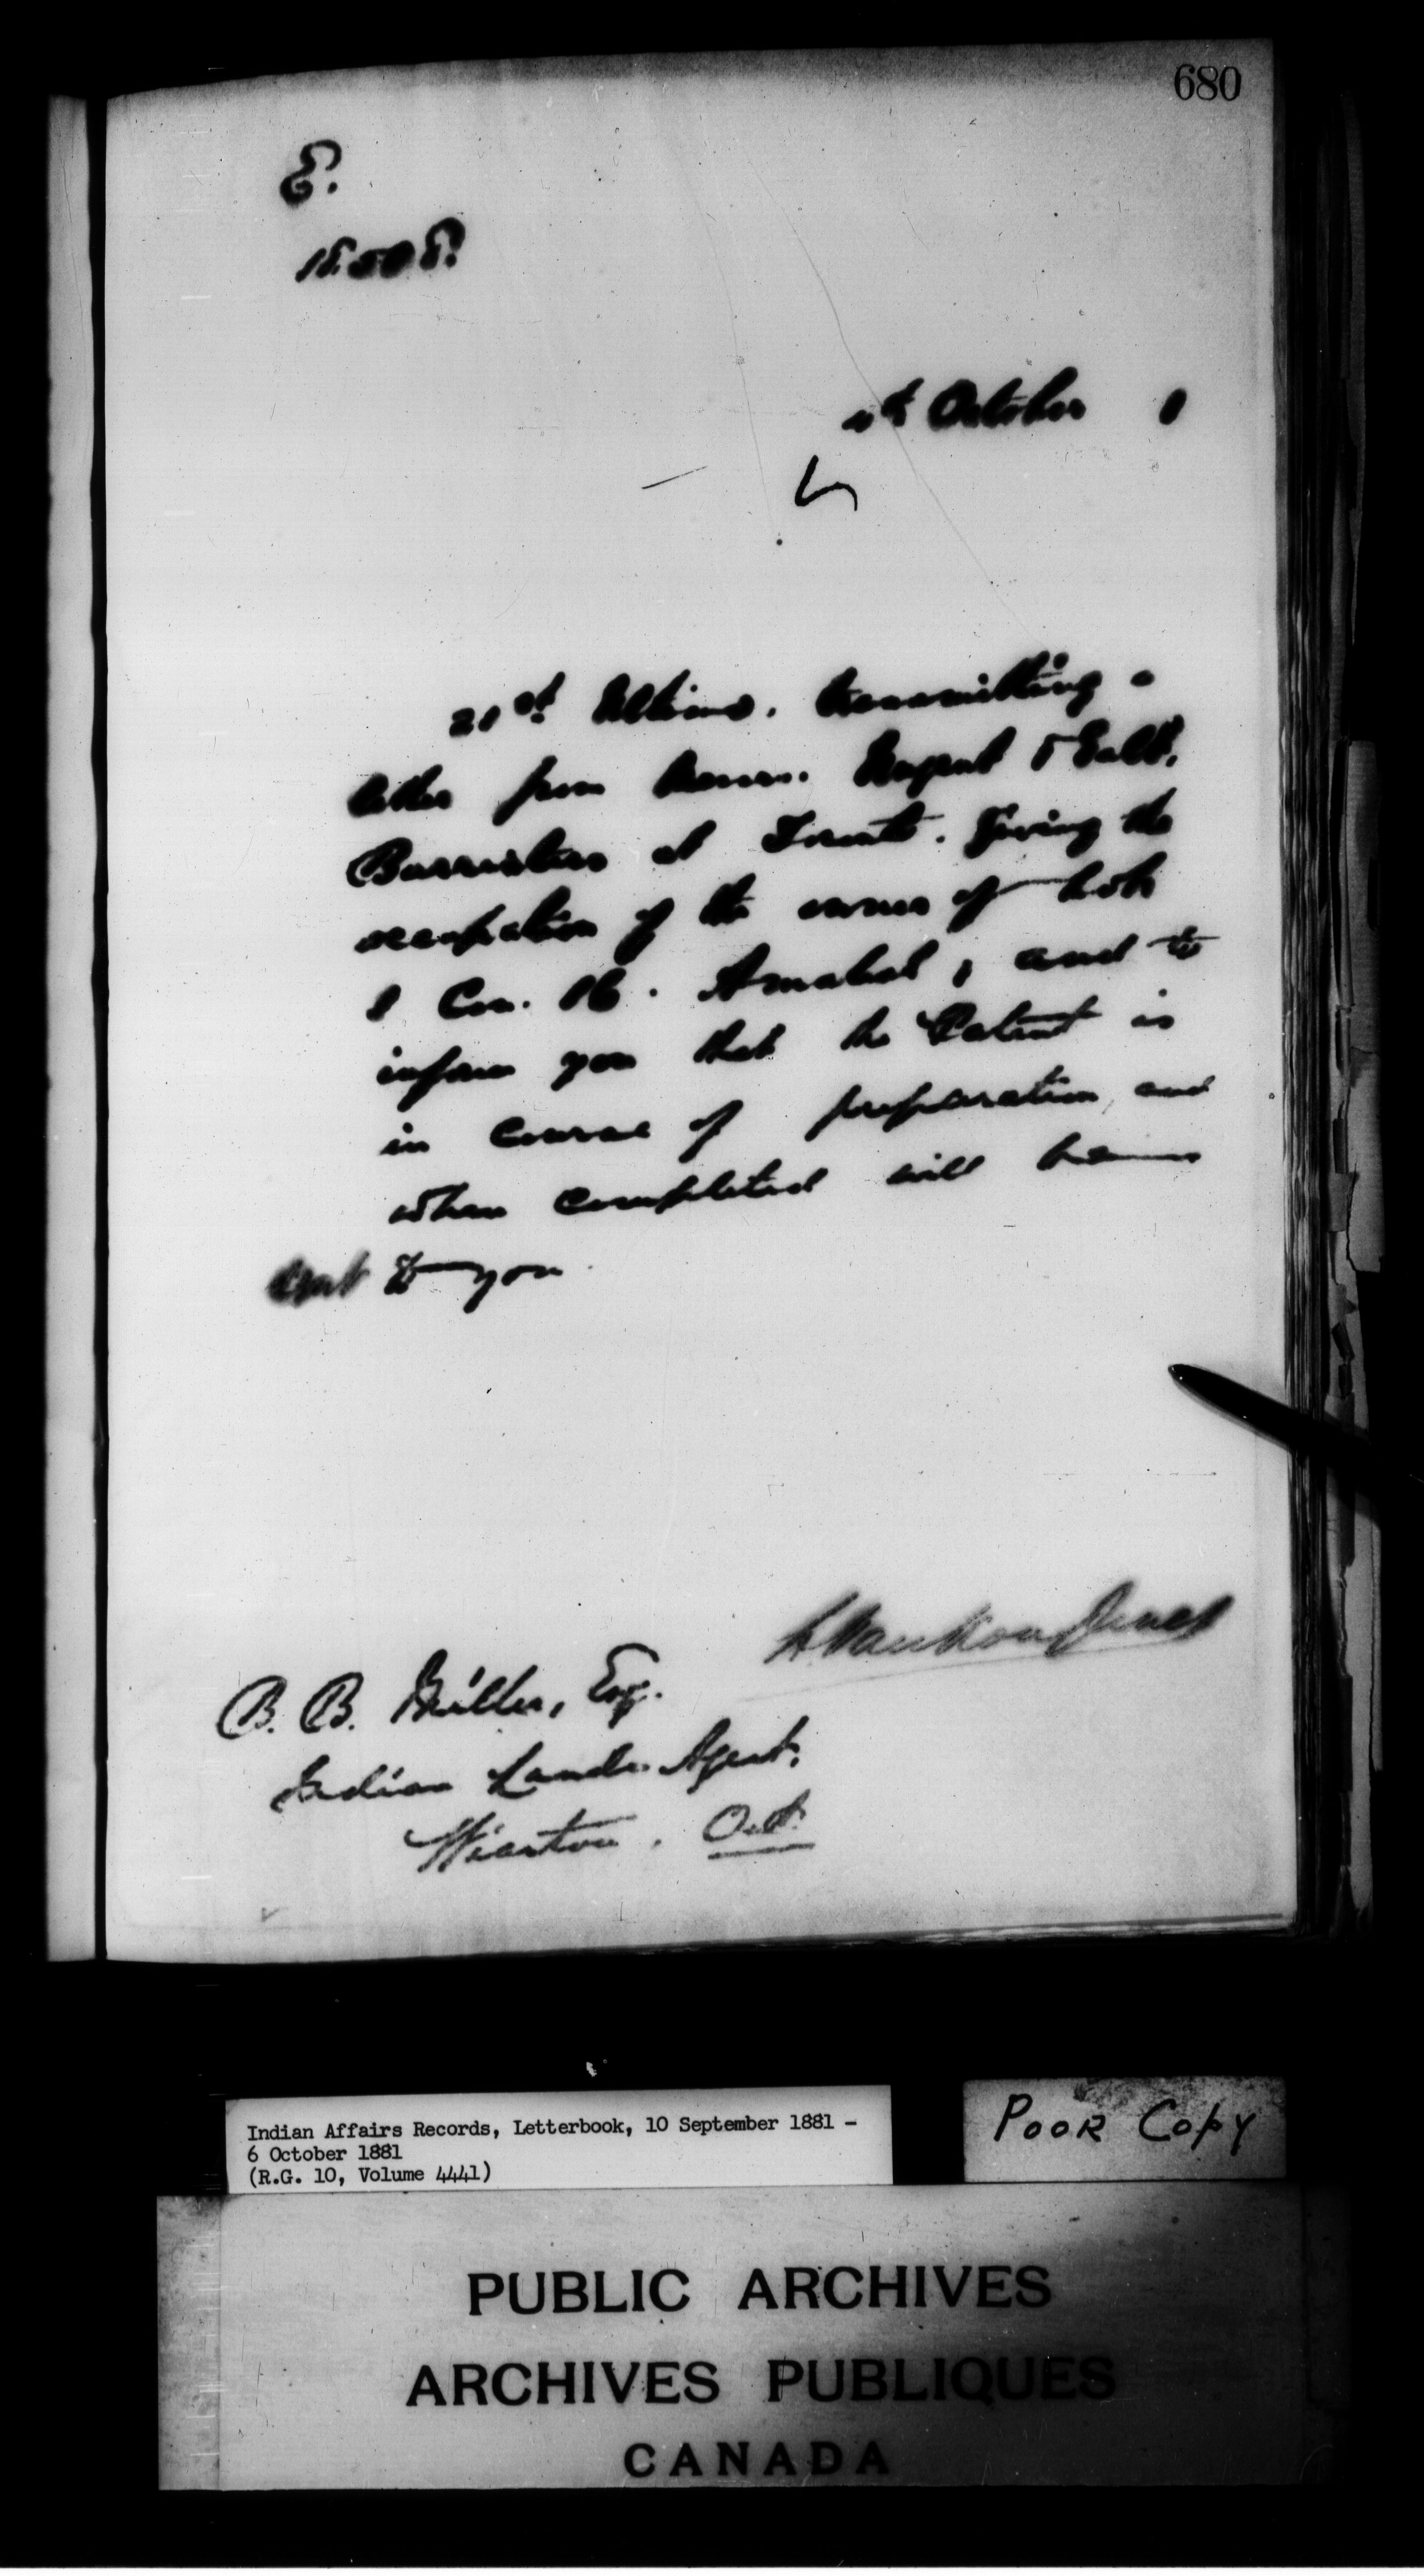 680
E.
October 1
21st Ultimo. transmitting a
letter from Messrs. Nugent & Galt,
Barristers at Toronto. Giving the
occupation of the owner of Lot
Con. 16. Amabel, and to
inform you that the Patent is
in course of preparation, and
when completed will be
sent to you
L Vankoughnet
B. B. Miller, Esq.
Indian Lands Agent,
Wiarton. Ont.
Indian Affairs Records, Letterbook, 10 September 1881 -
6 October 1881
(R.G. 10, Volume 4441)
POOR COPY
PUBLIC ARCHIVES
ARCHIVES PUBLIQUES
CANADA